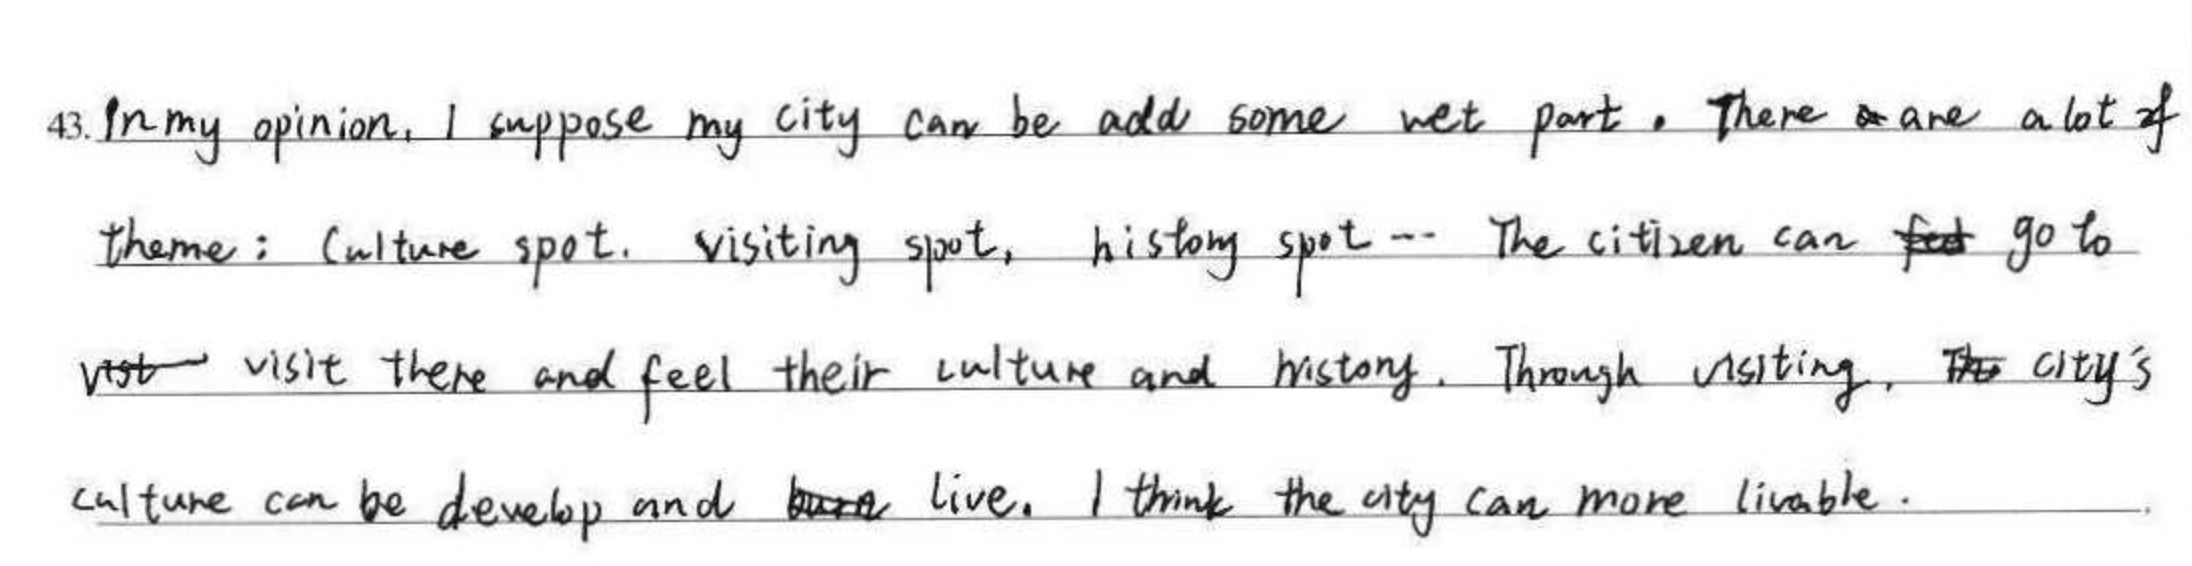 43. In my opinion, I suppose my city can be add some wet part. There are a lot of
theme: Culture spot. visiting spot, history spot --- The citizen can go to
visit there and feel their culture and history. Through visiting, city's
culture can be develop and live. I think the city can more livable.